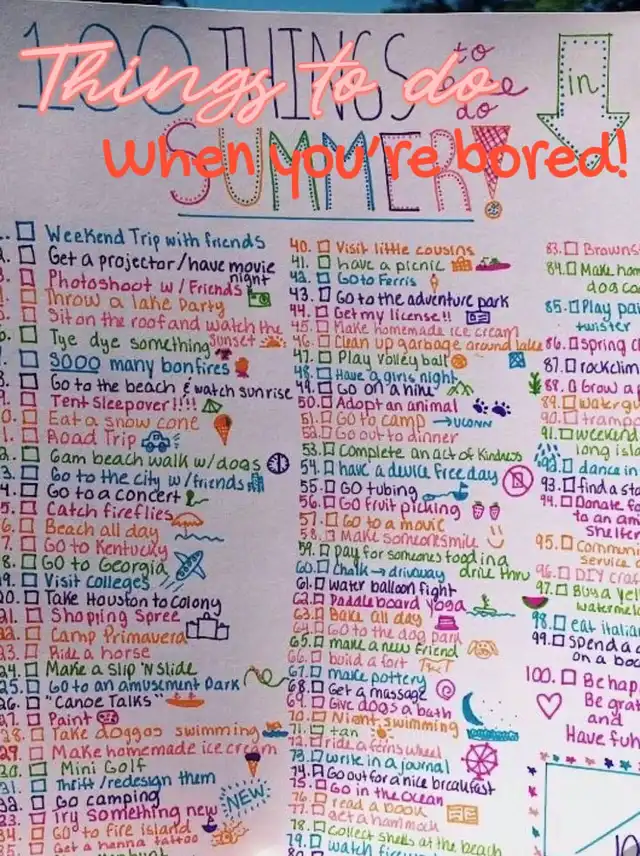 100 THINGS to
Things to do
do
in
When you're bored!
SUMMER!
Weekend Trip with friends
Get a projector/have movie
night
Photoshoot w/ Friends
Throw a lake Party
Sit on the roof and watch the
sunset
Tye dye something
SOOO many bonfires
Go to the beach & watch sunrise
Tent Sleepover!!!!
Eat a snow cone
Road Trip
6am beach walk w/ dogs
Go to the city w/ friends
Go to a concert
Catch fireflies
Beach all day
Go to Kentucky
Go to Georgia
Visit colleges
Take Houston to Colony
Shopping Spree
Camp Primavera
23. Ride a horse
24. Make a slip 'N slide
25. Go to an amusement park
26. "Canoe Talks"
27. Paint
28. Take doggos swimming
29. Make homemade ice cream
30. Mini Golf
31. Thrift/redesign them
32. Go camping
33. Try something new
NEW
34. Go to fire island
35. Get a henna tattoo
40. Visit little cousins
41. have a picnic
42. Go to Ferris
43. Go to the adventure park
44. Get my license!!
45. Make homemade ice cream
46. Clean up garbage around lake
47. Play Volley ball
48. Have a girls night
49. Go on a hike
50. Adopt an animal
51. Go to camp → UCONN
52. Go out to dinner
53. Complete an act of kindness
54. have a device free day
55. GO tubing
56. GO fruit picking
57. Go to a movie
58. Make someone smile
59. pay for someones food in a
drive thru
60. Chalk → driveway
61. water balloon fight
62. Paddle board yoga
63. Bake all day
64. Go to the dog park
65. make a new friend
66. build a fort
67. make pottery
68. Get a massage
69. Give dogs a bath
70. Night swimming
71. tan
72. ride a ferris wheel
73. write in a journal
74. Go out for a nice breakfast
75. Go in the ocean
76. read a book
77. get a hammock
78. collect shells at the beach
79. watch
80.
83.
84. Make
dog
85. Play
twister
86. spring
87.
88. Grow a
89.
90.
91. weekend
long
92. dance in
93. find a
94. Donate
to an
shelter
95.
service
96. DIY
97. Buy a
98. eat
99. Spend a
on a
100. Be
Be
and
Have